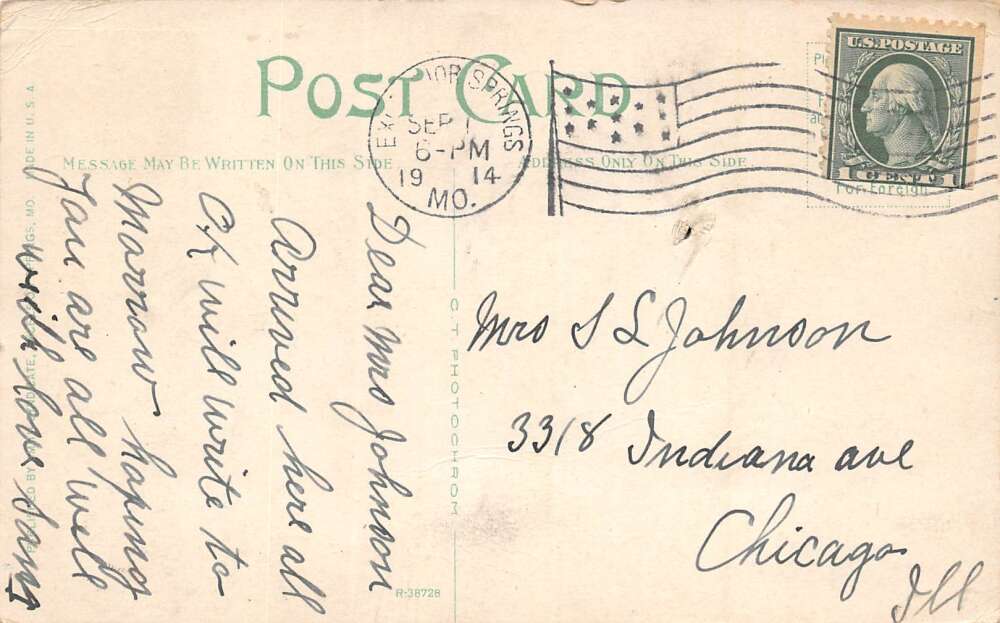 POST CARD
MESSAGE MAY BE WRITTEN ON THIS SIDE
ADDRESS ONLY ON THIS SIDE
SPRINGS
SEP 1
6-PM
1914
MO.
U.S.POSTAGE
1 CENT
For Foreign
Dear Mrs Johnson
Arrived here all
OK will write to
Morrow hoping
You are all well
with love
Mrs S L Johnson
3318 Indiana ave
Chicago
Ill
C.T. PHOTOCHROM
R-38728
SPRINGS, MO. MADE IN U.S.A.